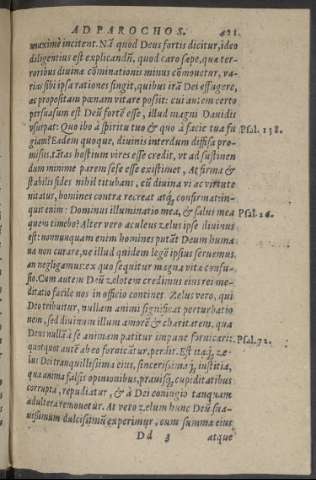 AD PAROCHOS. 421
maximè incitent. Nã quòd Deus fortis dicitur, ideo
diligentius est explicandũ, quòd caro sæpe, quæ ter-
roribus diuinæ cõminationis minus cõmouetur, va-
rias sibi ipsa rationes fingit, quibus irã Dei effugere,
ac propositam pœnam vitare possit: cui autem certò
persuasum est Deũ fortẽ esse, illud magni Dauidis
vsurpat: Quo ibo à spiritu tuo & quo à facie tua fu Psal. 138.
giam? Eadem quoque, diuinis interdum diffisa pro-
missis, tãtas hostium vires esse credit, vt ad sustinen
dum minimè parem sese esse existimet, At firma &
stabilis fides nihil titubans, cũ diuina vi ac virtute
nitatur, homines contra recreat atq; confirmat: in-
quit enim: Dominus illuminatio mea, & salus mea Psal. 26.
quem timebo? Alter verò aculeus zelus ipse diuinus
est: nonnunquam enim homines putãt Deum huma-
na non curare, ne illud quidem legẽ ipsius seruemus,
an negligamus: ex quo sequitur magna vitæ confu-
sio. Cum autem Deũ zelotem credimus, eius rei me-
ditatio facile nos in officio continet Zelus verò, qui
Deo tribuitur, nullam animi significat perturbatio
nem, sed diuinum illum amorẽ & charitatem, qua
Deus nullã à se animam patitur impunè fornicari: Psal. 72.
quotquot autẽ ab eo fornicãtur, perdit. Est itaq; ze-
lus Dei tranquillissima eius, sincerissimaq; iustitia,
qua anima falsis opinionibus, prauisq; cupiditatibus
corrupta, repudiatur, & à Dei coniugio tanquam
adultera remouetur. At verò zelum hunc Deũ sua-
uissimum dulcissimũ experimur, cum summa eius
Dd 3 atque